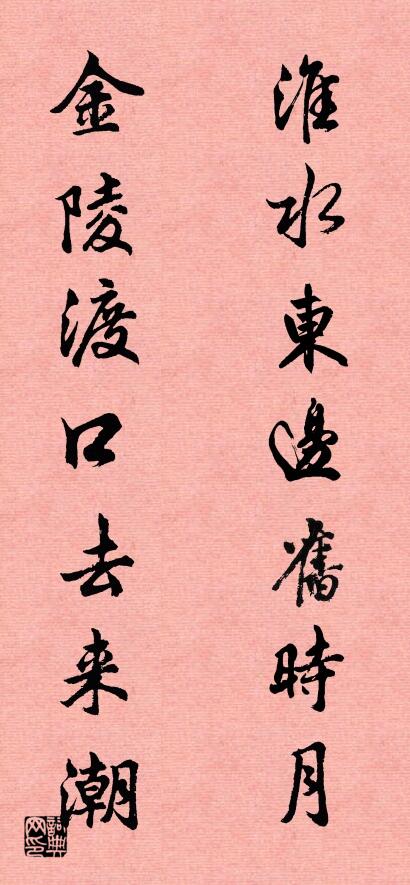 淮水東邊舊時月
金陵渡口去来潮